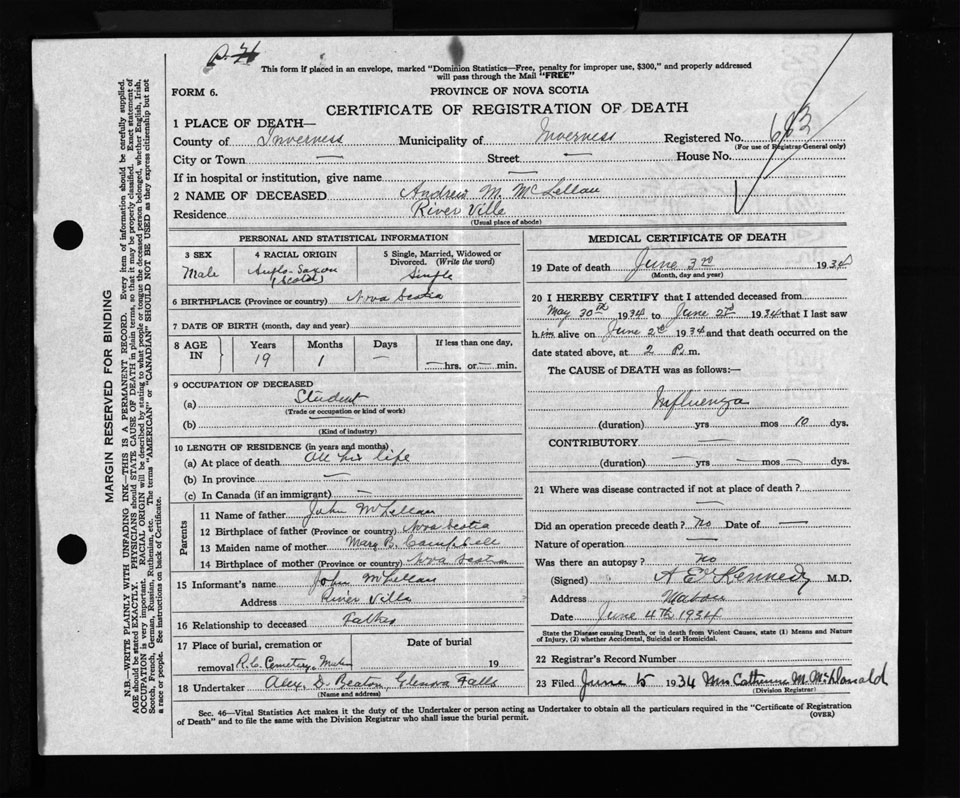 This form if placed in an envelope, marked "Dominion Statistics—Free, penalty for improper use, $300," and properly addressed
will pass through the Mail "FREE"
FORM 6.
PROVINCE OF NOVA SCOTIA
CERTIFICATE OF REGISTRATION OF DEATH
1 PLACE OF DEATH—
County of Inverness Municipality of Inverness Registered No. 663
(For use of Registrar General only)
City or Town — Street — House No.
If in hospital or institution, give name —
2 NAME OF DECEASED Andrew M. McLellan
Residence River Ville
(Usual place of abode)
PERSONAL AND STATISTICAL INFORMATION
3 SEX
Male
4 RACIAL ORIGIN
Anglo-Saxon
(Scotch)
5 Single, Married, Widowed or
Divorced. (Write the word)
Single
6 BIRTHPLACE (Province or country) Nova Scotia
7 DATE OF BIRTH (month, day and year)
8 AGE IN
Years Months Days If less than one day,
19 1 — —hrs. or—min.
9 OCCUPATION OF DECEASED
(a) Student
(Trade or occupation or kind of work)
(b)
(Kind of industry)
10 LENGTH OF RESIDENCE (in years and months)
(a) At place of death All his life
(b) In province —
(c) In Canada (if an immigrant) —
Parents
11 Name of father John McLellan
12 Birthplace of father (Province or country) Nova Scotia
13 Maiden name of mother Mary B. Campbell
14 Birthplace of mother (Province or country) Nova Scotia
15 Informant's name John McLellan
Address River Ville
16 Relationship to deceased Father
17 Place of burial, cremation or Date of burial
removal R.C. Cemetery, 19
18 Undertaker Alex. D. Beaton Glenora Falls
(Name and address)
MEDICAL CERTIFICATE OF DEATH
19 Date of death June 3rd 1934
(Month, day and year)
20 I HEREBY CERTIFY that I attended deceased from
May 30th 1934 to June 2nd 1934 that I last saw
him alive on June 2nd 1934 and that death occurred on the
date stated above, at 2 P.m.
The CAUSE of DEATH was as follows:—
Influenza
(duration) yrs mos 10 dys.
CONTRIBUTORY —
(duration) — yrs — mos — dys.
21 Where was disease contracted if not at place of death? —
Did an operation precede death? No Date of —
Nature of operation —
Was there an autopsy? No
(Signed) Kennedy M.D.
Address Mabou
Date June 4th 1934
State the Disease causing Death, or in death from Violent Causes, state (1) Means and Nature
of Injury, (2) whether Accidental, Suicidal or Homicidal.
22 Registrar's Record Number
23 Filed June 5 1934 Mrs Catherine M. McDonald
(Division Registrar)
Sec. 46—Vital Statistics Act makes it the duty of the Undertaker or person acting as Undertaker to obtain all the particulars required in the "Certificate of Registration
of Death" and to file the same with the Division Registrar who shall issue the burial permit.
(OVER)
MARGIN RESERVED FOR BINDING
N.B.—WRITE PLAINLY WITH UNFADING INK—THIS IS A PERMANENT RECORD. Every item of information should be carefully supplied.
AGE should be stated EXACTLY. PHYSICIANS should STATE CAUSE OF DEATH in plain terms, so that it may be properly classified. Exact statement of
OCCUPATION is very important. RACIAL ORIGIN will be described by stating to what people or tongue the deceased person belonged, whether English, Irish,
Scotch, French, German, Russian, Ruthenian, etc. The terms "AMERICAN" or "CANADIAN" SHOULD NOT BE USED as they express citizenship but not
a race or people. See instructions on back of Certificate.